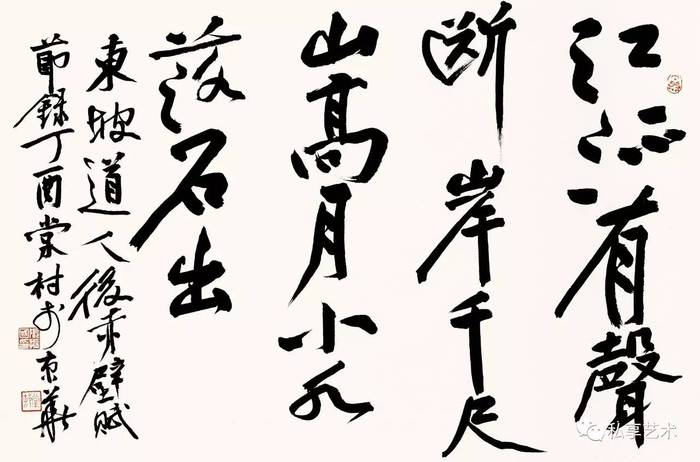 江流有聲
断岸千尺
山高月小水
落石出
東坡道人後赤壁賦
節録丁酉棠村於京華
私享艺术